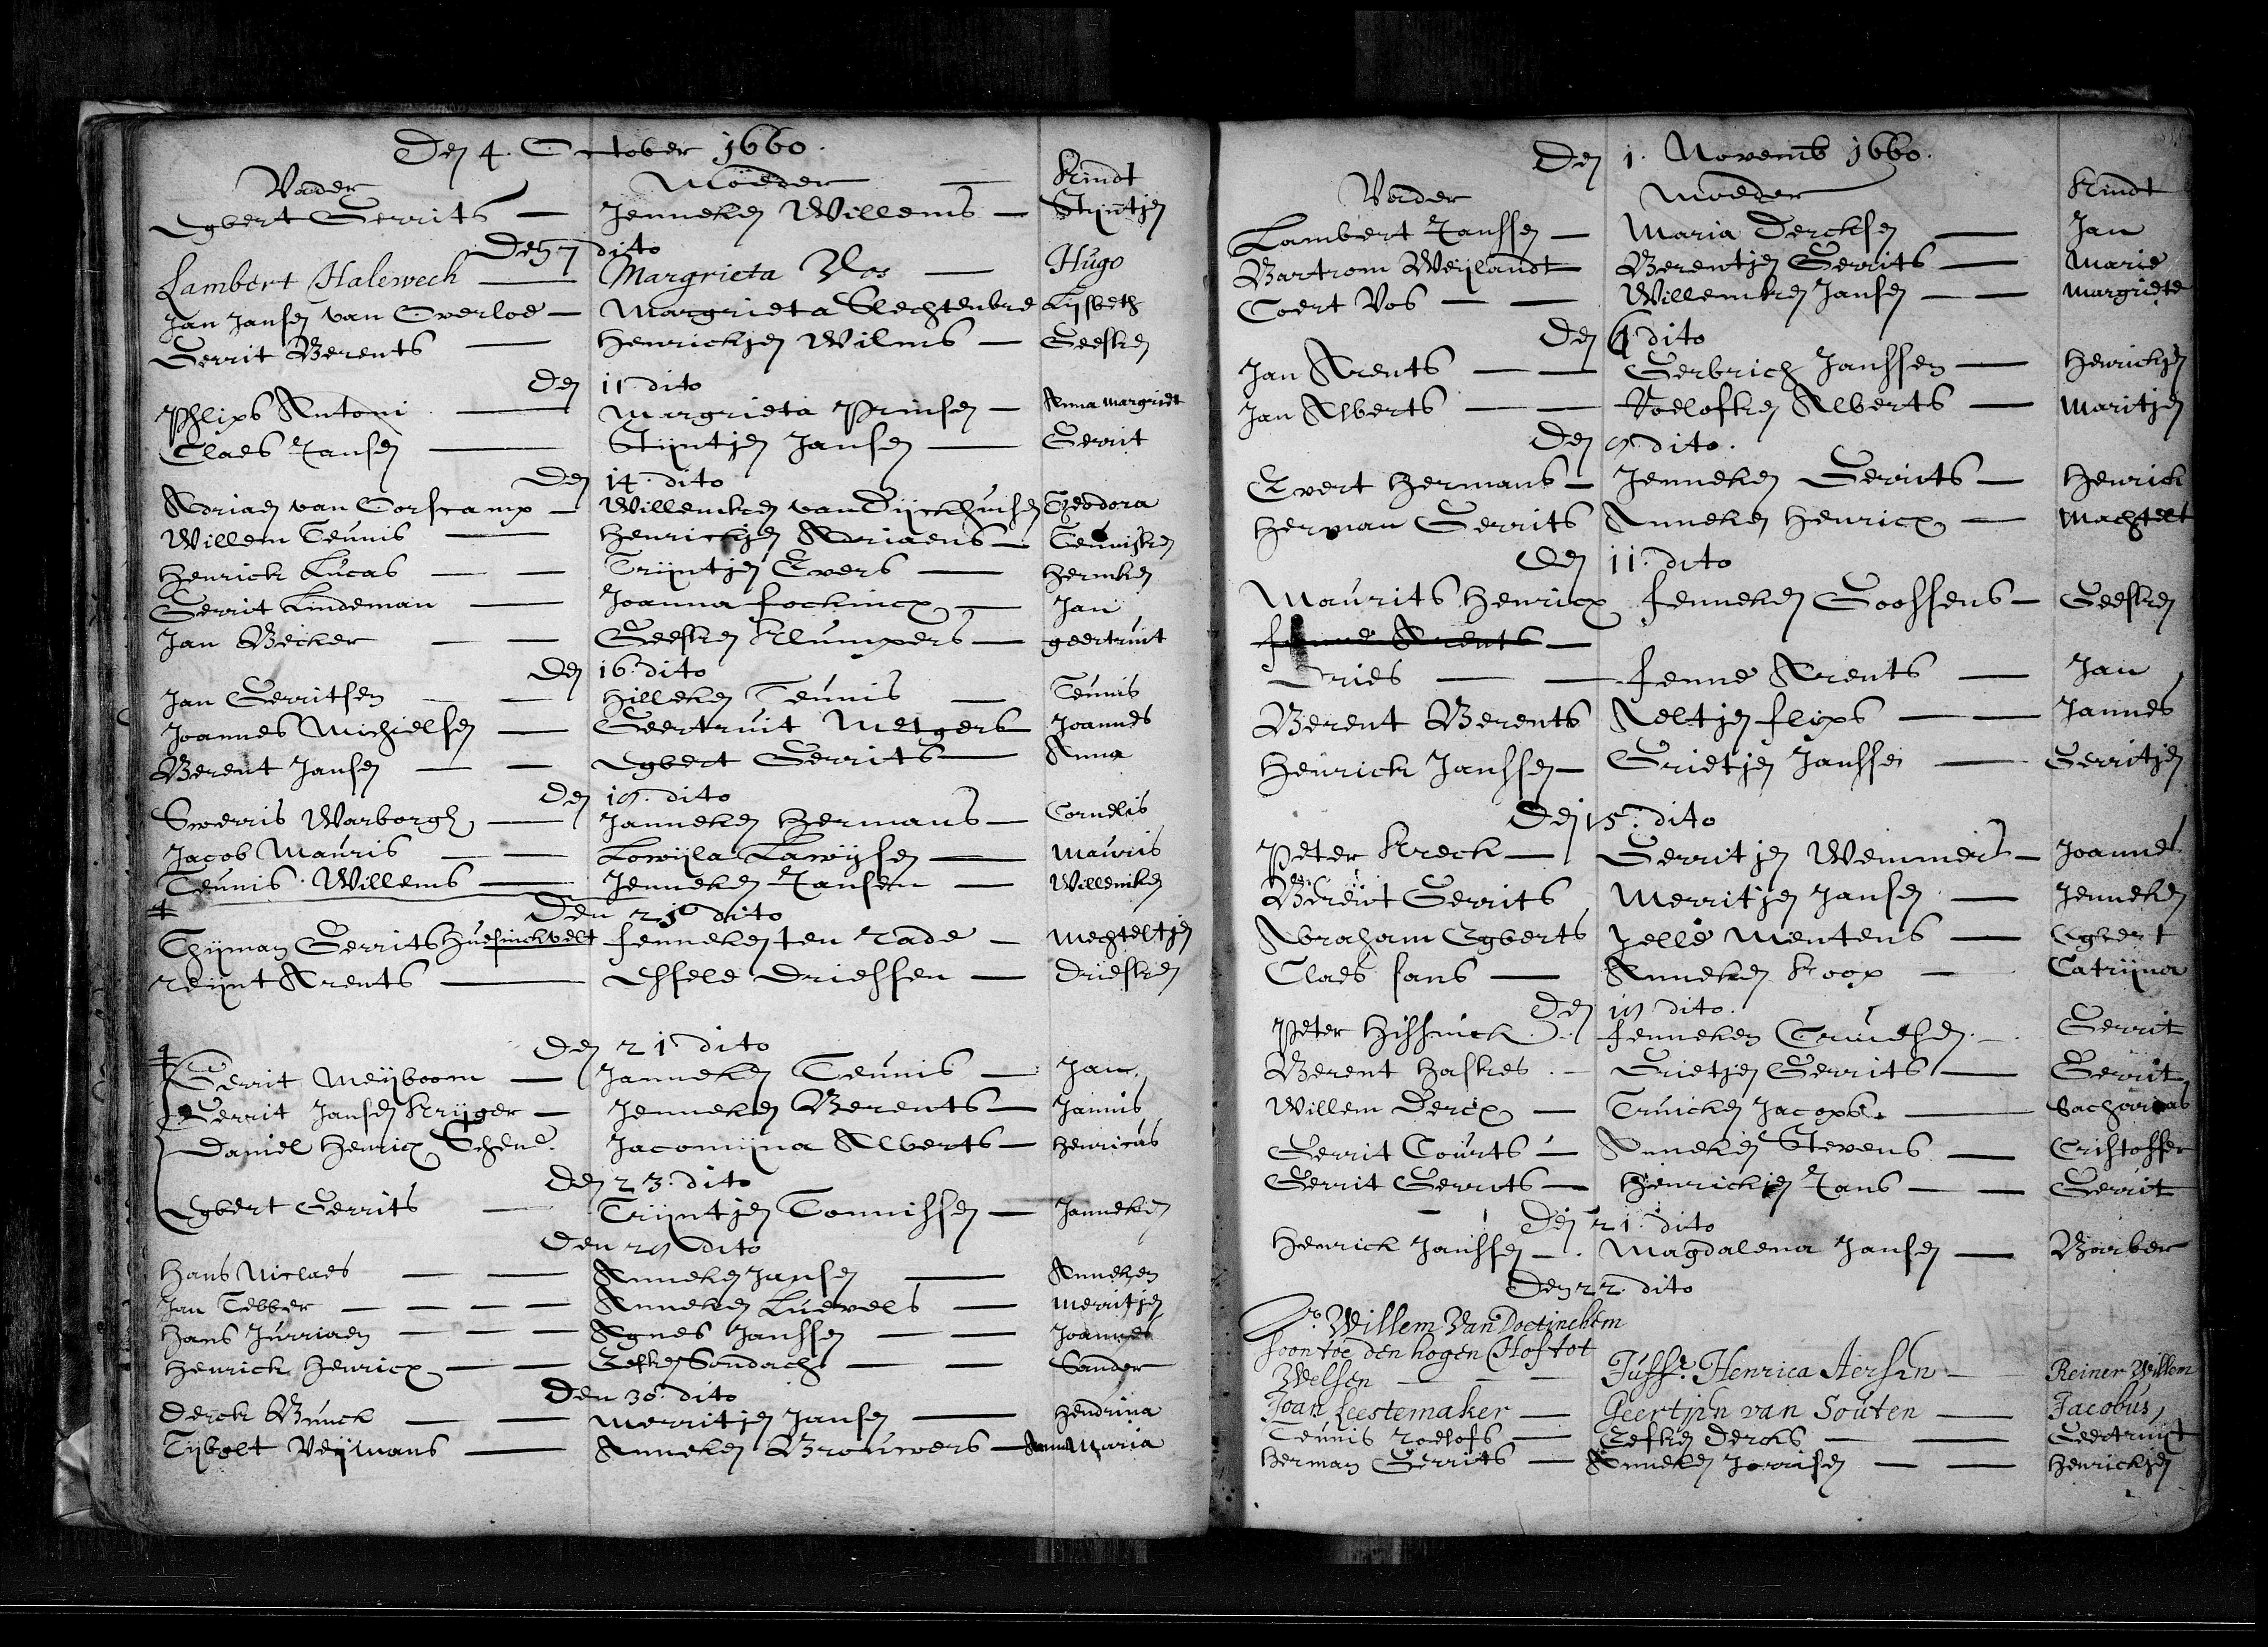 Den 4. October 1660.
Vader Moeder Kindt
Egbert Gerrits — Jenneken Willems — Stijntjen
Den 7 dito
Lambert Halewech — Margrieta Vos — Hugo
Jan Jansen van Overloe — Margrieta Slechtenbre Lijsbeth
Gerrit Berents — Henrickjen Wilms — Geesken
Den 11 dito
Phlips Antoni — Margrieta Prinsen — Anna margriet
Claes Jansen — Stijntjen Jansen — Gerrit
Den 14. dito
Adriaen van Corscamp — Willemken van Dijckhuisen Theodora
Willem Teunis — Henrickjen Adriaens — Teunisken
Henrick Lucas — — Trijntjen Evers — Hermken
Gerrit Lindeman — Joanna fockincx — Jan
Jan Becker — — Geesken Klumpers — geertruit
Den 16 dito
Jan Gerritsen — — Hilleken Teunis — Teunis
Joannes Michielsen — Geertruit Metgers Joannes
Berent Jansen — — Egbert Gerrits — Anna
Den 19. dito
Sweris Warborgh — Janneken Hermans — Cornelis
Jacob Mauris — — Lowijla Lawijsen — Mauris
Teunis Willems — Jenneken Jansen — Willemken
Den 210 dito
Thijman Gerrits Huesinckvelt fenneken ten Rade — Mechteltjen
Reijnt Arents — Essele Driessen — Driesken
Den 21 dito
Gerrit Meijboom — Janneken Teunis — Jan
Gerrit Jansen Krijger — Jenneken Berents — Jannis
Daniel Henricx Schene. Jacomijna Alberts — Henricus
Den 23. dito
Egbert Gerrits — Trijntjen Tonnissen — Janneken
Den 29 dito
Hans Niclaes — — Anneken Jansen — Anneken
Jan Tebber — — — — Anneken Luevels — Merritjen
Hans Jurriaen — — — Agnes Janssen — — Joannes
Henrick Henricx — — Eefken Sondach — — Sander
Den 30. dito
Derck Bunck — — Merritjen Jansen — Hendrina
Tijbolt Veijmans — Anneken Brouwers — Anna Maria
Den 1. Novemb 1660.
Vader Moeder Kindt
Lambert Janssen — Maria Dercksen — Jan
Bartrom Weijlandt Berentjen Gerrits — Marie
Coert Vos — — Willemken Jansen — — Margriete
Den 4 dito
Jan Arents — — Gerbrich Janssen — Henrickjen
Jan Alberts — — Roelofken Alberts — Maritjen
Den 9 dito.
Evert Hermans — Jenneken Gerrits — Henrick
Herman Gerrits Anneken Henricx — Machtelt
Den 11. dito
Maurits Henricx fenneken Goossens — Geesken
fenne Arents —
Dries — — fenne Arents — Jan
Berent Berents Aeltjen flips — — Jannes
Henrick Janssen — Grietjen Janssen — Gerritjen
Den 15. dito
Peter Kreck — Gerritjen Wemmers — Joannes
Berent Gerrits Merritjen Jansen — Jenneken
Abraham Egberts Jelle Mentens — Egbert
Claes fans — Anneken Koop — Catrijna
Den 19 dito.
Peter Hissinck . fenneken Cruesen. — Gerrit
Berent Haskes . — Grietjen Gerrits — Gerrit
Willem Dercx — Truicken Jacops — Sacharias
Gerrit Courts — Anneken Stevens — Cristoffer
Gerrit Gerrits — Henrickjen Jans — — Gerrit
Den 21. dito
Henrick Janssen — . Magdalena Jansen — Barber
Den 22 dito
Jor. Willem Van Doetinchem
soon toe den hogen Hof tot
Welsen — — — Juffr. Henrica Aersen — Reiner Willem
Joan Leestemaker — Geertjen van Souten — Jacobus
Teunis Roelofs — Eefken Dercks — — Geertruijt
Herman Gerrits — Anneken Jorrisen — — Henrickjen